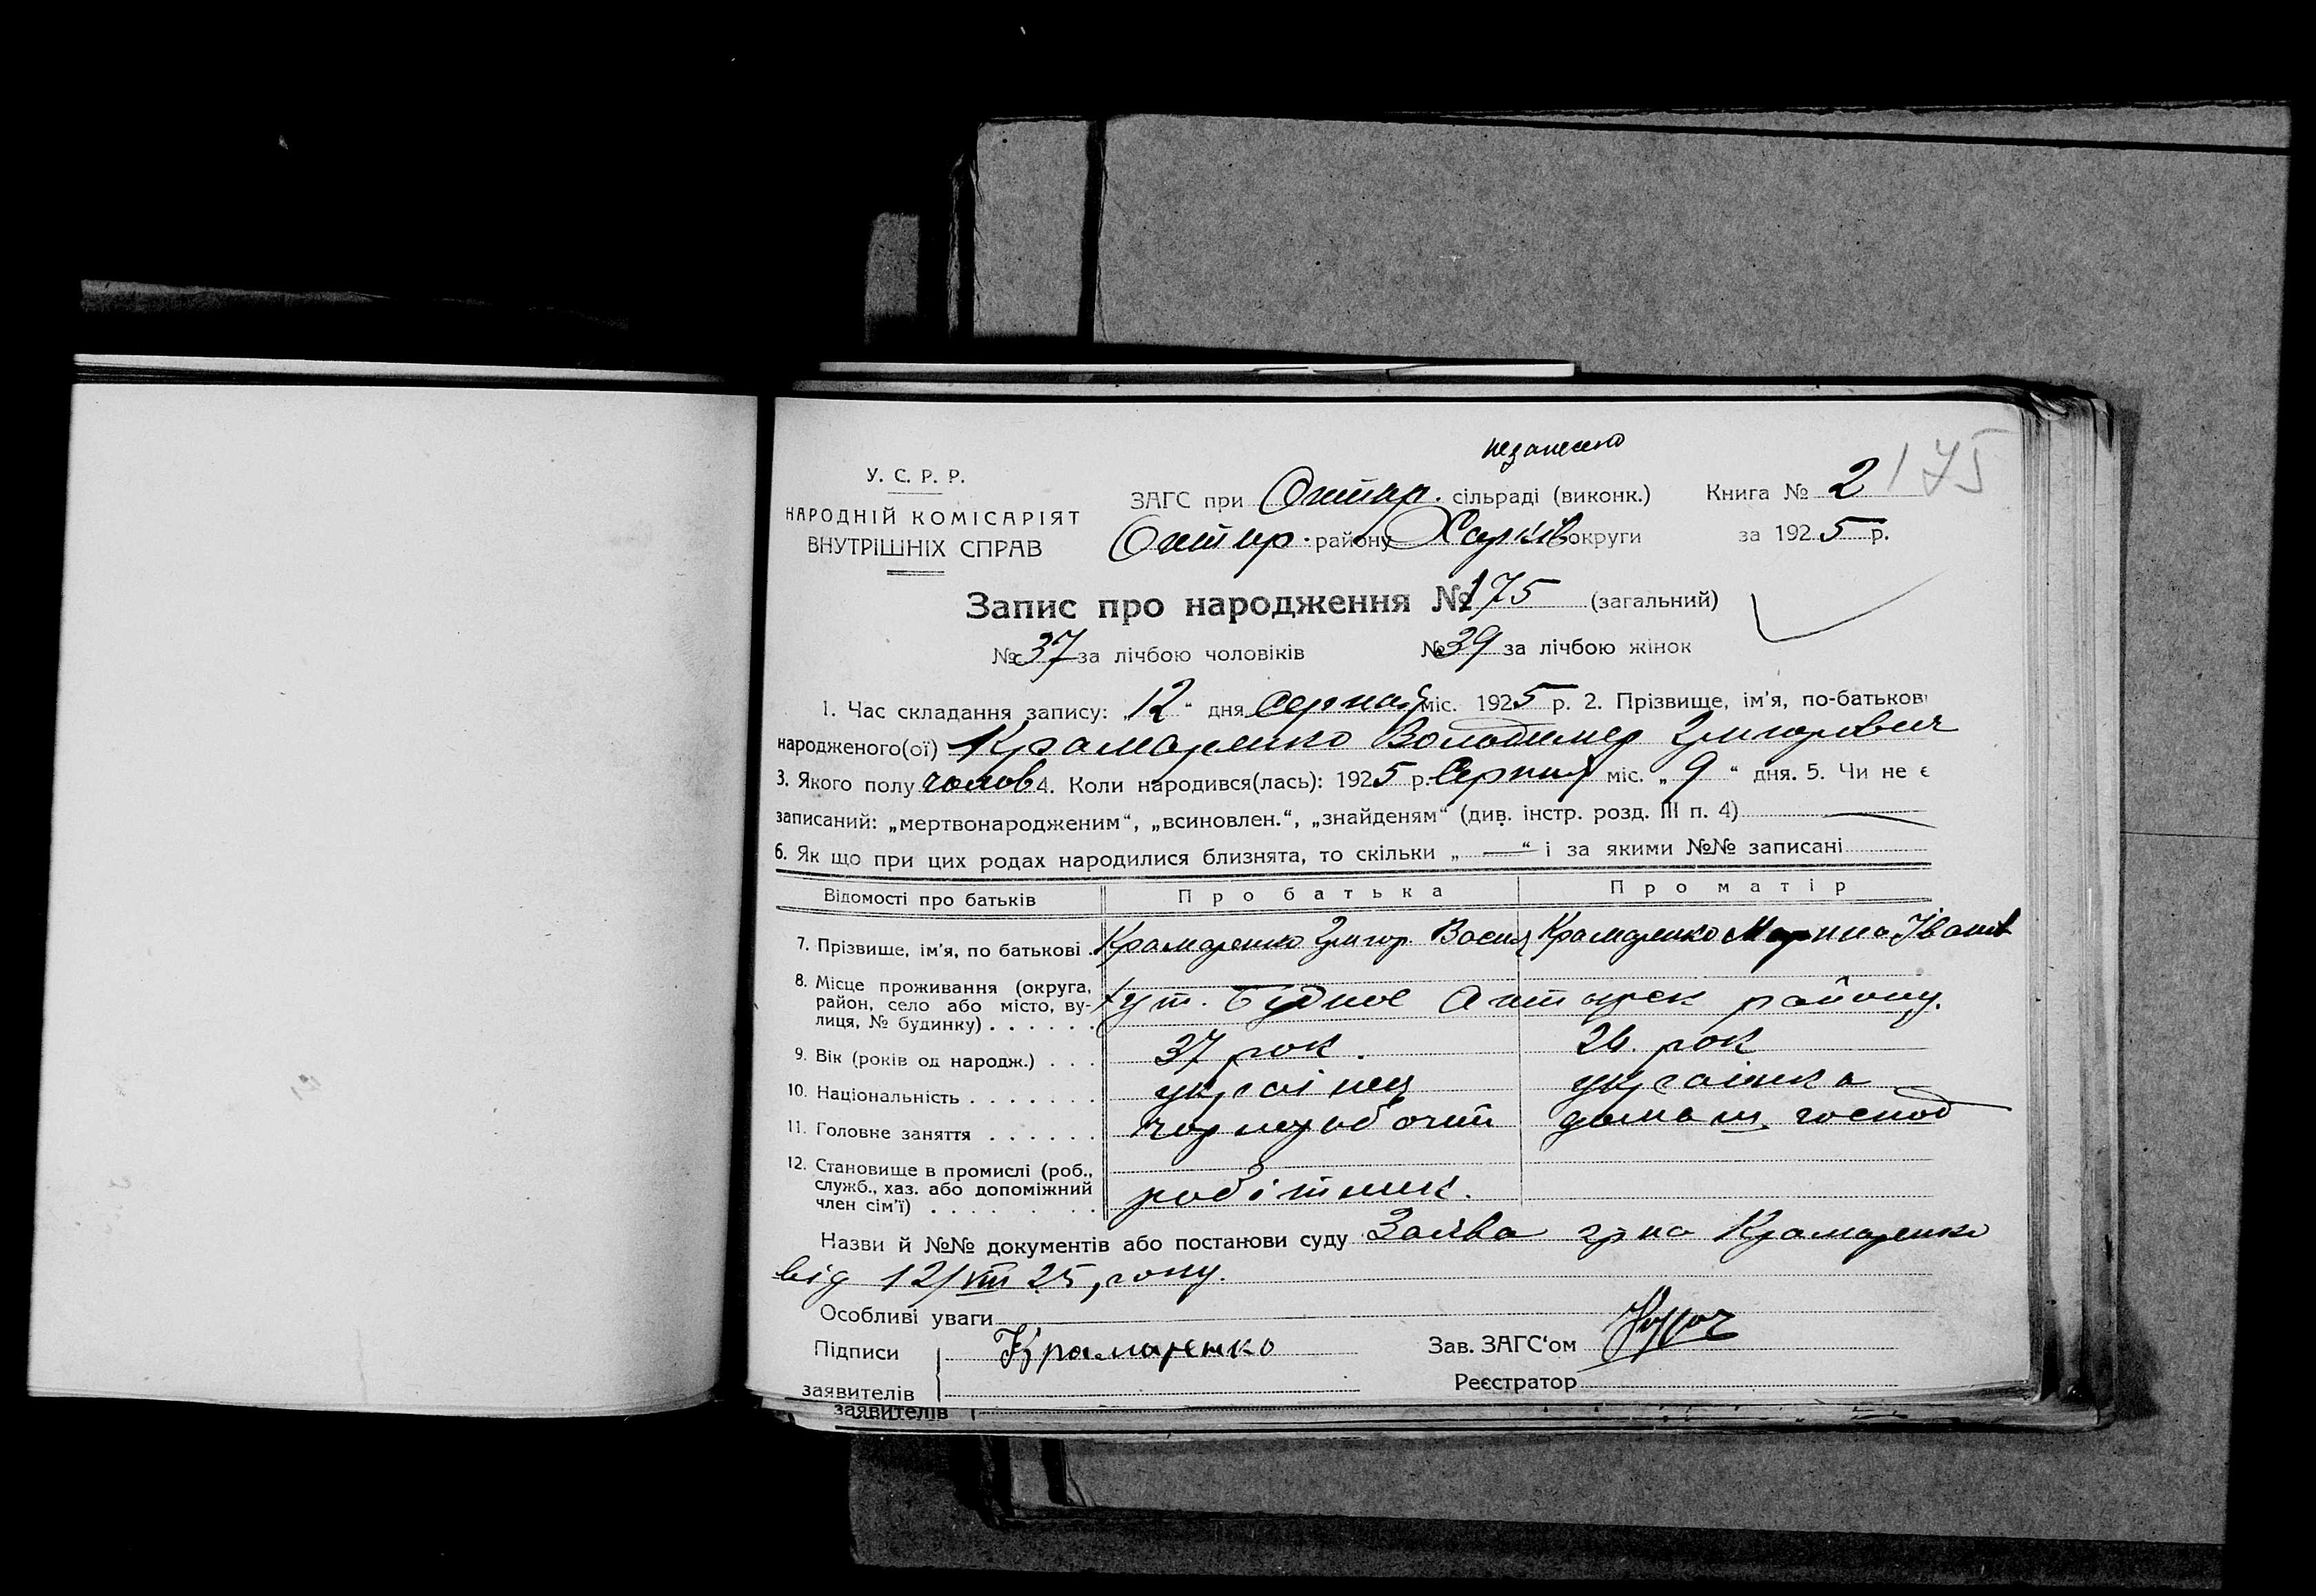 незанесено
У. С. Р. Р.
НАРОДНІЙ КОМІСАРІЯТ
ВНУТРІШНІХ СПРАВ
ЗАГС при Охтир. сільраді (виконк.) Книга № 2 175
Охтир. району Харків округи за 1925 р.
Запис про народження № 175 (загальний)
№ 37 за лічбою чоловіків № 39 за лічбою жінок
1. Час складання запису: „12“ дня серпня міс. 1925 р. 2. Прізвище, ім'я, по-батькові
народженого(ої) Крамаренко Володимер Григорович
3. Якого полу чолов 4. Коли народився(лась): 1925 р. Серпня міс. „9“ дня. 5. Чи не є
записаний: „мертвонародженим“, „всиновлен.“, „знайденям“ (див. інстр. розд. III п. 4) —
6. Як що при цих родах народилися близнята, то скільки „—“ і за якими №№ записані
Відомості про батьків Про батька Про матір
7. Прізвище, ім'я, по батькові Крамаренко Григор. Васил Крамаренко Марина Іванів
8. Місце проживання (округа,
район, село або місто, ву-
лиця, № будинку) хут. Буднее Охтирск району.
9. Вік (років од народж.) 37 рок. 26. рок
10. Національність українец українка
11. Головне заняття чорноробочий домаш. господ
12. Становище в промислі (роб.,
служб., хаз. або допоміжний
член сім'ї) робітник.
Назви й №№ документів або постанови суду Заява гр-на Крамаренко
від 12/VIII 25, року.
Особливі уваги
Підписи Крамаренко Зав. ЗАГС'ом
заявителів Реєстратор
заявителів